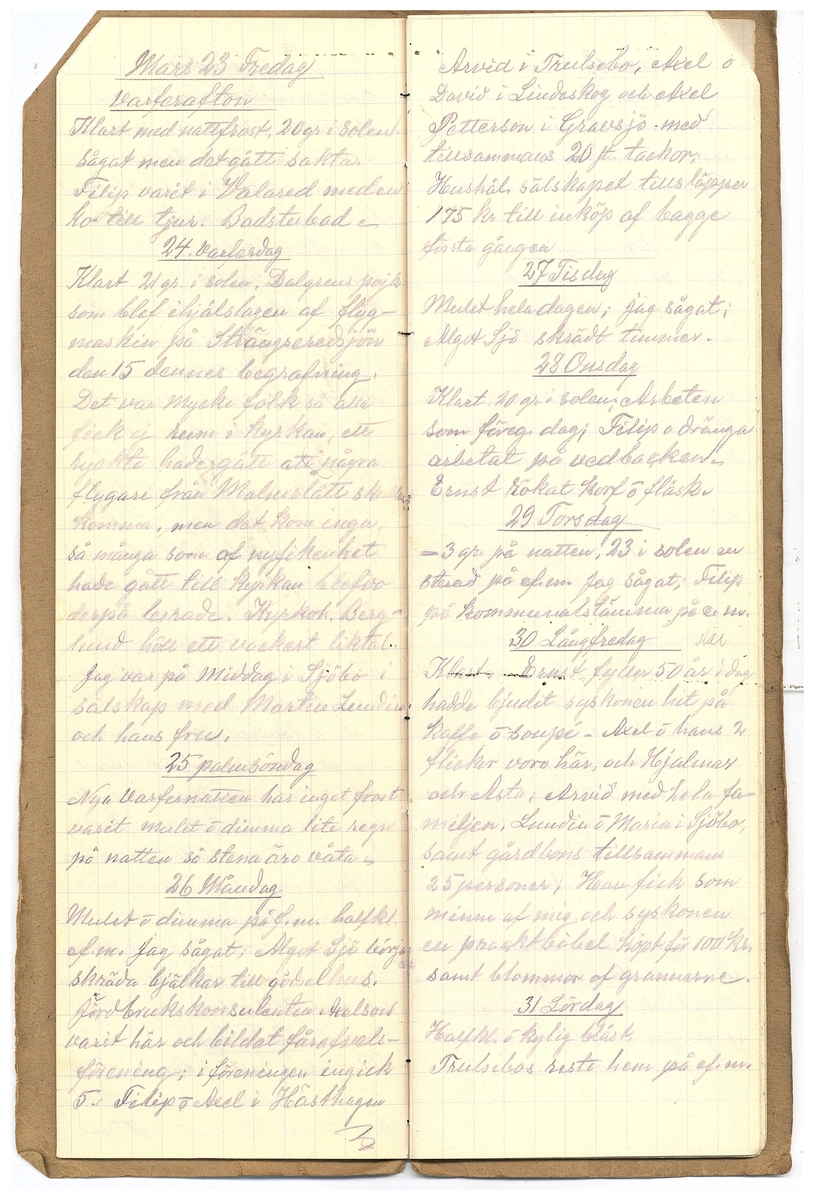 Mars 23 Fredag
Varfrafton
Klart med nattfrost, 20 gr i solen.
Sågat men det gått sakta.
Filip varit i Valared med en
ko till tjur. Badstubad
24. Varfrudag
Klart 21 gr. i solen. Dalgrens pojk
som blef ihjälslagen af flyg-
maskin på Strängseredsjön
den 15 dennes begrafning.
Det var mycke folk så alla
fick ej rum i kyrkan, ett
ryckte hade gått att några
flygare från Malmslätt skulle
komma, men det kom inga,
så många som af nyfikenhet
hade gått till kyrkan blefvo
derpå lurade. Kyrkoh. Berg-
lund höll ett vackert liktal.
Jag var på Middag i Sjöbo i
sälskap med Martin Lundin
och hans fru.
25 palmsöndag
Nya Varfrunatten har inget frost
varit mulet o dimma lite regn
på natten så stena äro våta
26 Måndag
Mulet o dimma på f.m. halfkl.
ef.m. Jag sågat; Algot Sjö börja
skräda bjälkar till gödselhus.
Jordbrukskonsulenten Axelson
varit här och bildat fårafvels-
förening; i föreningen ingick
5. Filip o Axel i Hästhagen
Arvid i Trulsebo, Axel o
David i Lindeskog och Axel
Petterson i Gravsjö med
tillsammans 20 st. tackor;
Hushål. sälskapet tillsläpper
175 kr till inköp af bagge
första gången
27 Tisdag
Mulet hela dagen; jag sågat;
Algot Sjö skrädt timmer.
28 Onsdag
Klart 20 gr i solen; Arbeten
som föreg. dag; Filip o dränga
arbetat på vedbacken
Ernst rökat korf o fläsk.
29 Torsdag
- 3 gr. på natten, 23 i solen en
stund på ef.m. Jag sågat; Filip
på kommunalstämma på e.m.
30 Långfredag
Klart. Ernst fyller 50 år idag
hadde bjudit syskonen hit på
Kaffe o soupé - Axel o hans 2
flickor voro här, och Hjalmar
och Asta; Arvid med hela fa-
miljen, Lundin o Maria i Sjöbo,
samt gårdbons tillsamman
25 personer; Han fick som
minne af mig och syskonen
en praktbibel köpt för 100 kr.
samt blommor af grannarne.
31 Lördag
Halfkl. o kylig blåst.
Trulsebos reste hem på ef.m.